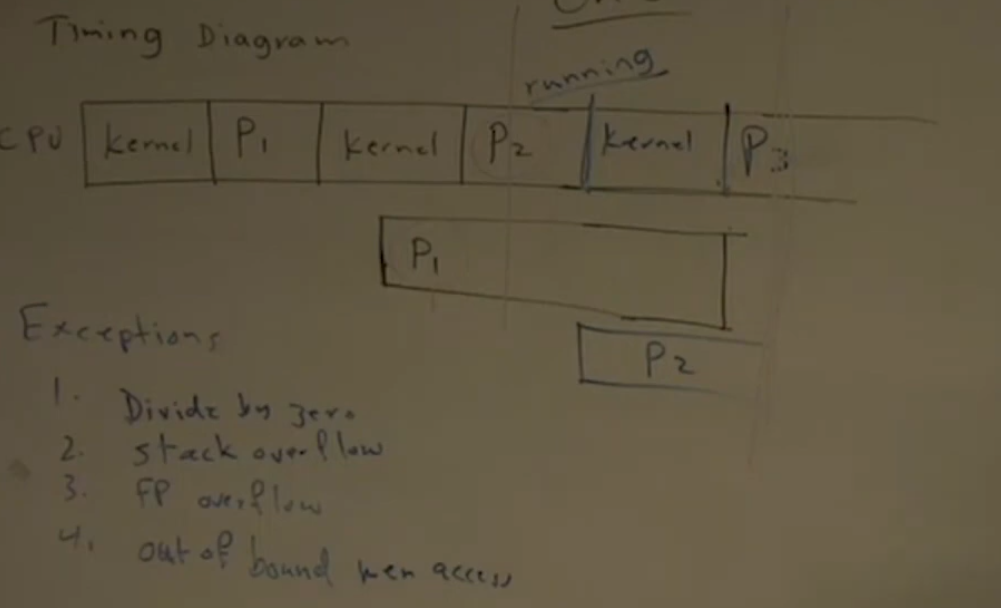 Timing Diagram
running
CPU kernel P1 kernel P2 kernel P3
P1
P2
Exceptions
1. Divide by zero
2. stack overflow
3. FP overflow
4. out of bound mem access